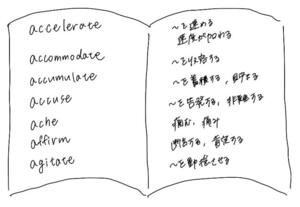 accelerate
accommodate
accumulate
accuse
ache
affirm
agitate
〜を速める
速度が加わる
〜を収容する
〜を蓄積する、貯める
〜を告発する、非難する
痛む、痛み
断言する、肯定する
〜を動揺させる